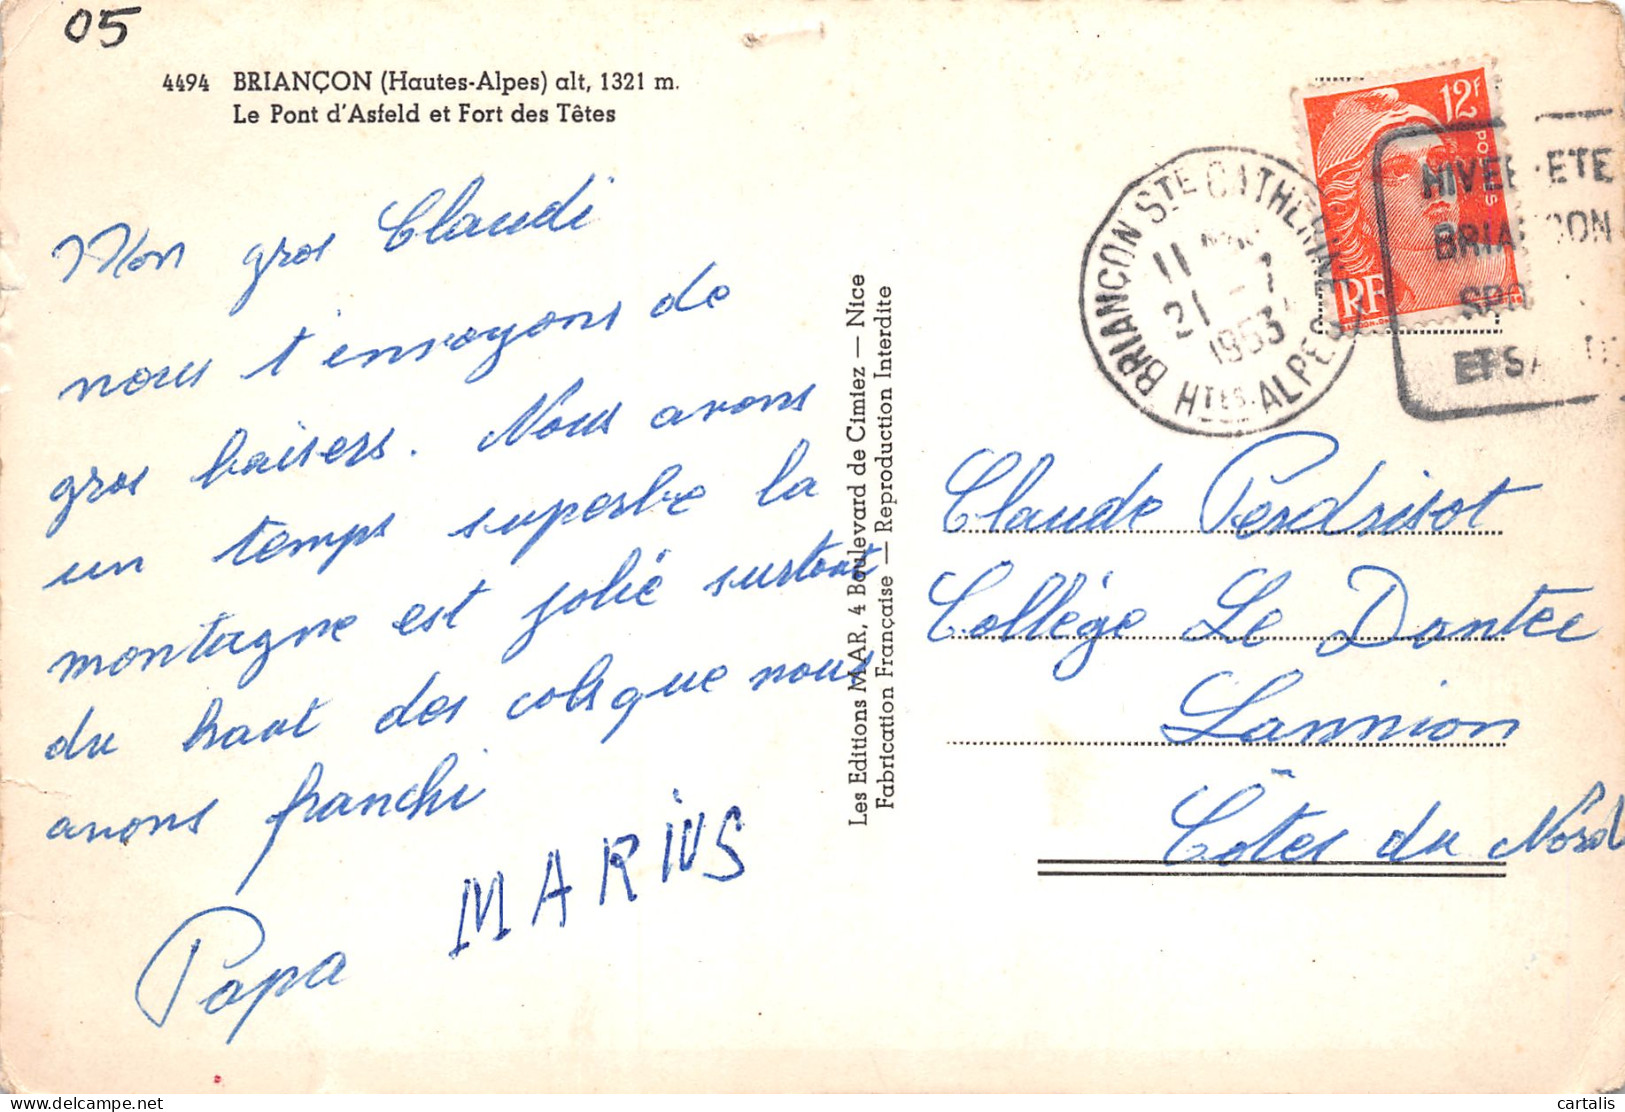 05
4494 BRIANÇON (Hautes-Alpes) alt, 1321 m.
Le Pont d'Asfeld et Fort des Têtes
Mon gros Claudi
nous t'envoyons de
gros baisers. Nous avons
un temps superbe la
montagne est jolie surtout
du haut des cols que nous
avons franchi
Papa MARIUS
Les Editions MAR, 4 Boulevard de Cimiez — Nice
Fabrication Française — Reproduction Interdite
12F
POSTES
RF
BRIANÇON STE CATHERINE
11
21 -7
1953
HTES ALPES
HIVER ETE
BRIANCON
ET
Claude Perdrisot
Collège Le Dantec
Lannion
Côtes du Nord
cartalis